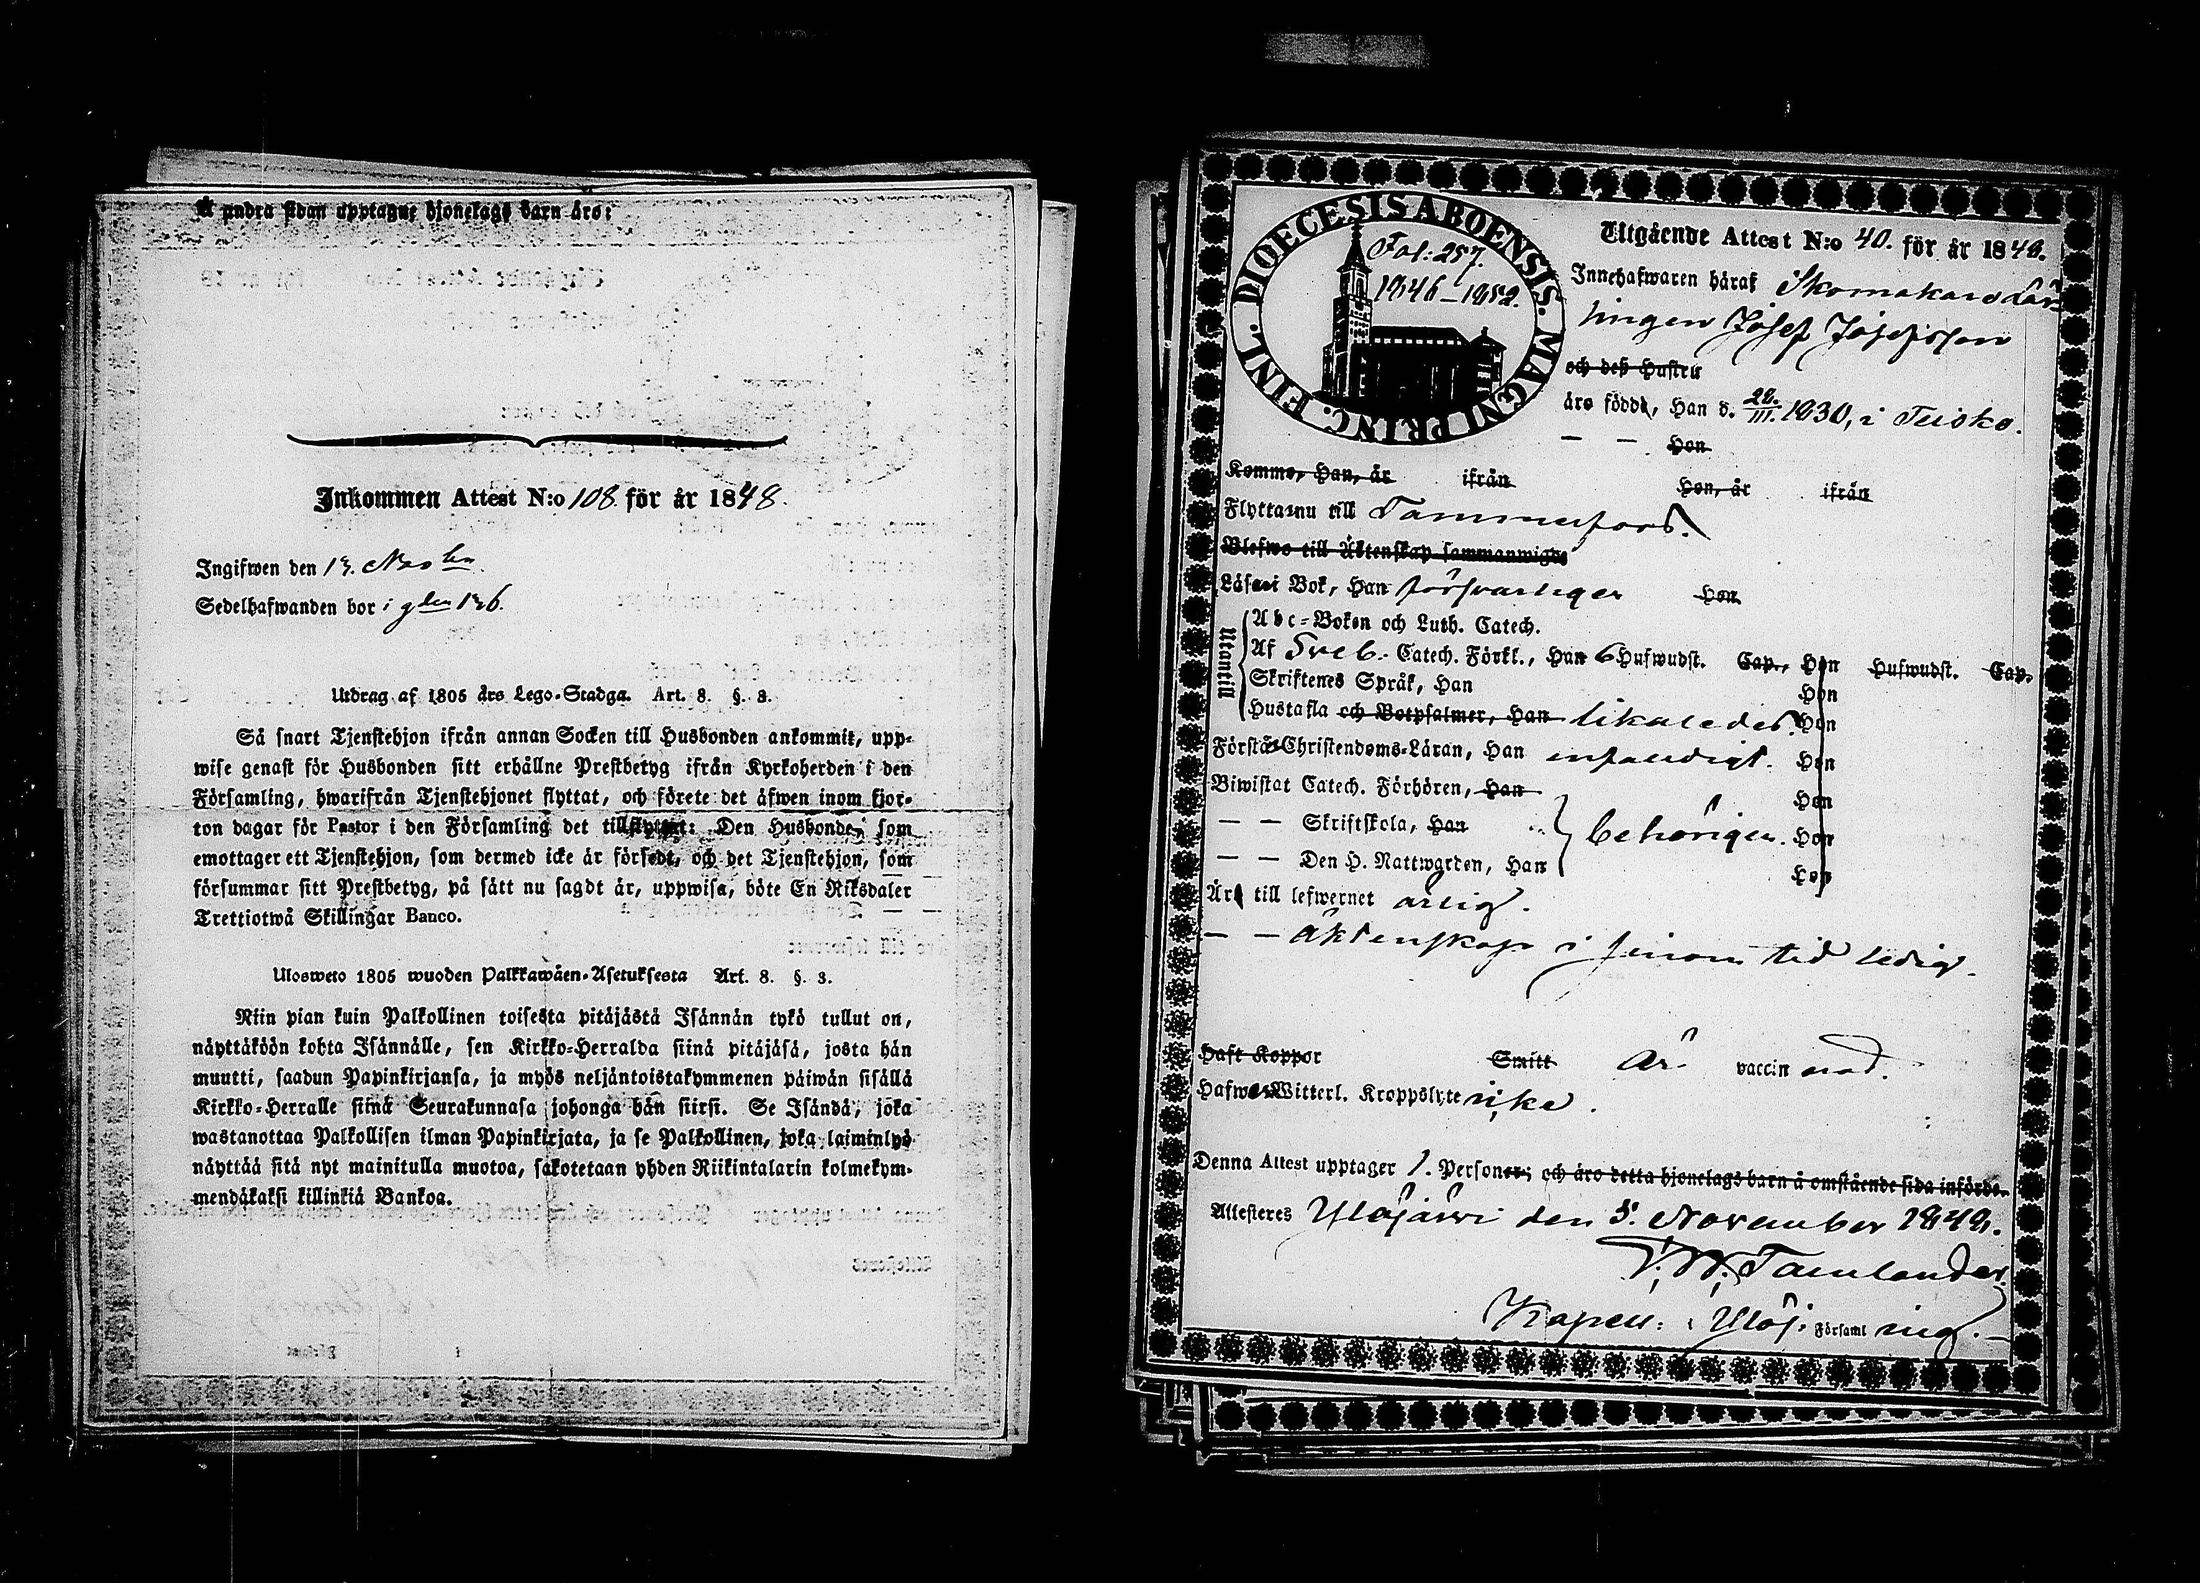 Å andra sidan upptagne hjonelags barn äro:
Inkommen Attest N:o 108. för år 1848.
Ingifwen den 13. Novbr.
Sedelhafwanden bor i
Utdrag af 1805 års Lego-Stadga. Art. 8. §. 3.
Så snart Tjenstehjon ifrån annan Socken till Husbonden ankommit, upp-
wise genast för Husbonden sitt erhållne Prestbetyg ifrån Kyrkoherden i den
Församling, hwarifrån Tjenstehjonet flyttat, och förete det äfwen inom fjor-
ton dagar för Pastor i den Församling det tillflyttat: Den Husbonde, som
emottager ett Tjenstehjon, som dermed icke är försedt, och det Tjenstehjon, som
försummar sitt Prestbetyg, på sätt nu sagdt är, uppwisa, böte En Riksdaler
Trettiotwå Skillingar Banco.
Ulosweto 1805 wuoden Palkkawäen-Asetuksesta Art. 8. §. 3.
Niin pian kuin Palkollinen toisesta pitäjästä Isännän tykö tullut on,
näyttäköön kohta Isännälle, sen Kirkko-Herralda siinä pitäjäsä, josta hän
muutti, saadun Papinkirjansa, ja myös neljäntoistakymmenen päiwän sisällä
Kirkko-Herralle siinä Seurakunnasa johonga hän siirsi. Se Isändä, joka
wastanottaa Palkollisen ilman Papinkirjata, ja se Palkollinen, joka laiminlyö
näyttää sitä nyt mainitulla muotoa, sakotetaan yhden Riikintalarin kolmekym-
mendäkaksi killinkiä Bankoa.
DIOECESIS ABOENSIS. MAGNI PRINC. FINL.
Fol: 257.
1846–1852.
Utgående Attest N:o 40. för år 1848.
Innehafwaren häraf Skomakarelär-
lingen Josef Josefsson
och deß Hustru
äro födde, Han d. 28/III. 1830, i Teisko.
— — Hon
Kommo, Han, år ifrån Hon, år ifrån
Flytta nu till Tammerfors.
Blefwo till Äktenskap sammanwigde
Läsa i Bok, Han försvarligen Hon
Utantill
Abc-Boken och Luth. Catech.
Af Sveb. Catech. Förkl., Han 6 Hufwudst. Cap., Hon Hufwudst. Cap.
Skriftenes Språk, Han Hon
Hustafla och Botpsalmer, Han likaledes. Hon
Förstå Christendoms-Läran, Han enfaldigt. Hon
Biwistat Catech. Förhören, Han Hon
— — Skriftskola, Han behörigen. Hon
— — Den H. Nattwarden, Han Hon
Är till lefwernet ärlig.
— — äktenskap i sinom tid ledig.
Haft Koppor Smitt är vaccinerad.
Hafwa Witterl. Kroppslyte icke.
Denna Attest upptager 1. Personer; och äro detta hjonelags barn å omstående sida införde.
Attesteres Ylöjärvi den 5. November 1848.
Kapell: i Ylöj. Församling.